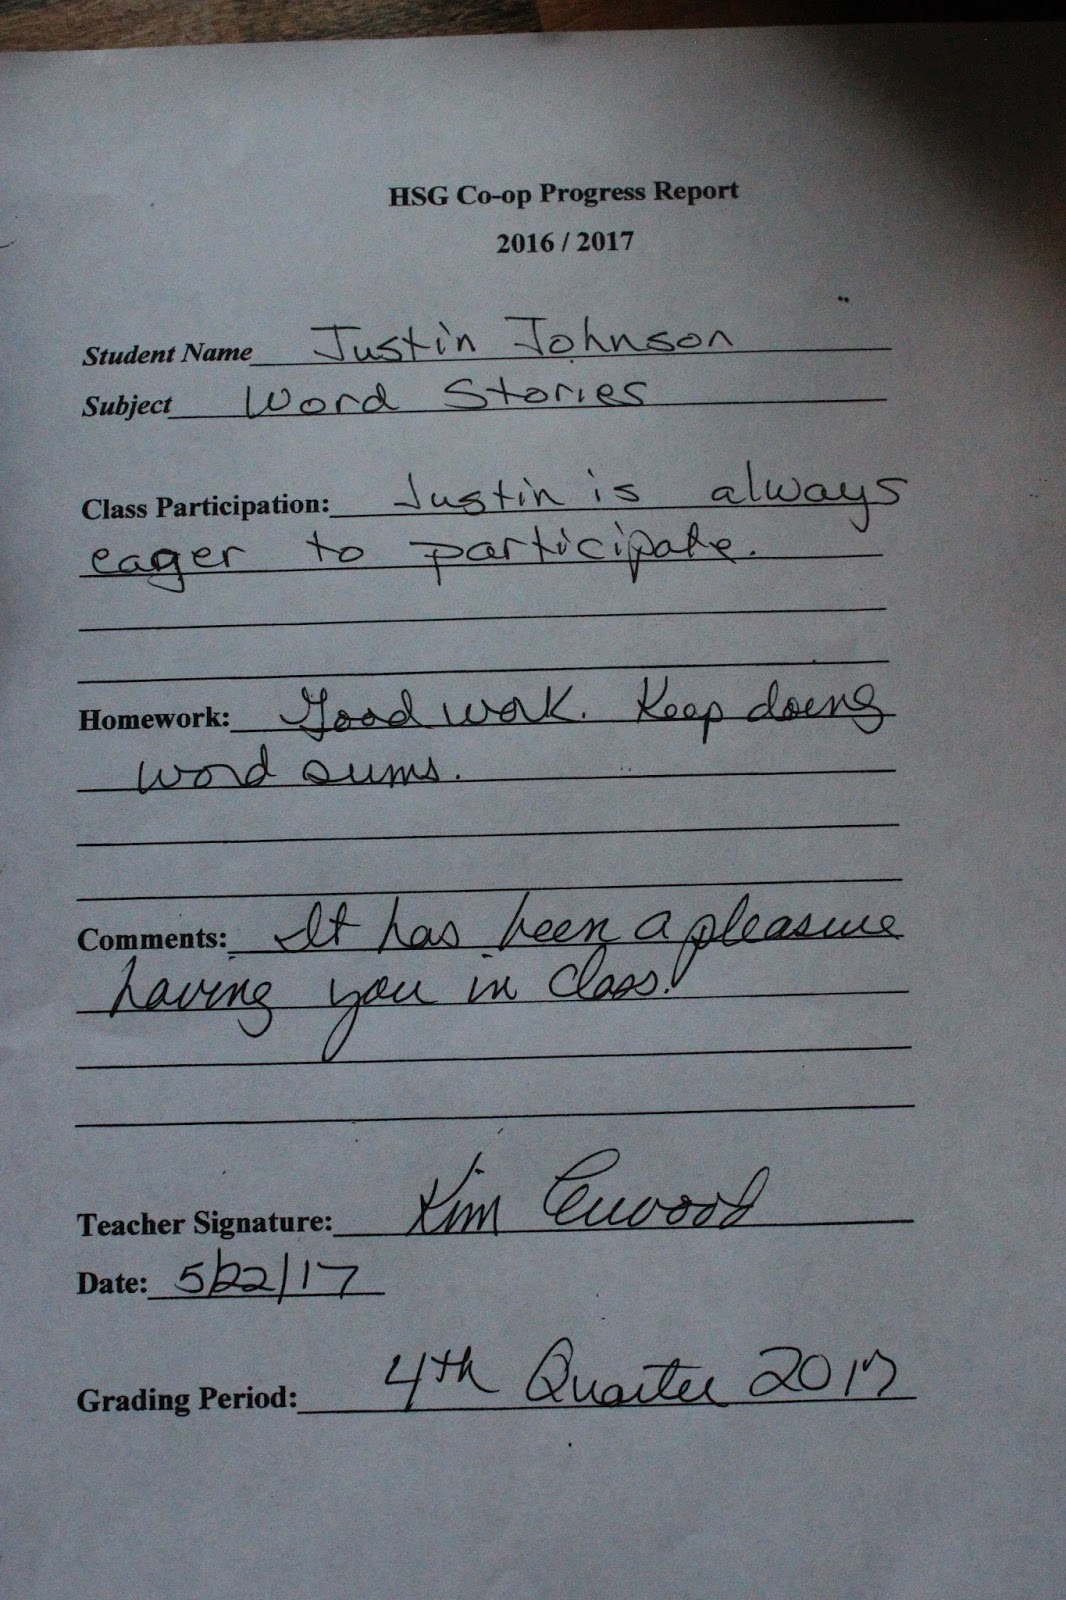 HSG Co-op Progress Report
2016 / 2017
Student Name Justin Johnson
Subject Word Stories
Class Participation: Justin is always
eager to participate.
Homework: Good work. Keep doing
word sums.
Comments: It has been a pleasure
having you in class!
Teacher Signature: Kim
Date: 5/22/17
Grading Period: 4th Quarter 2017